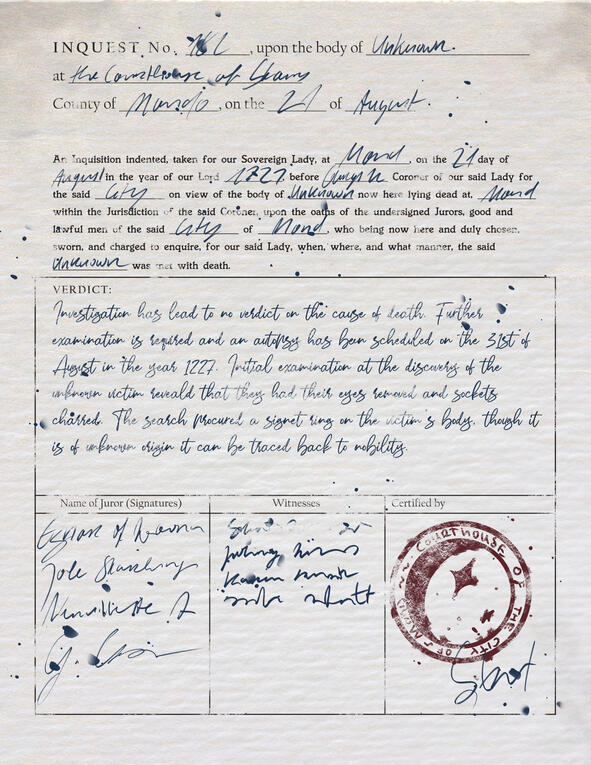 INQUEST No. , upon the body of Unknown.
at the Courthouse of
County of , on the 21 of August.
An Inquisition indented, taken for our Sovereign Lady, at Mond, on the 21 day of
August in the year of our Lord 1227, before Coroner of our said Lady for
the said City on view of the body of Unknown now here lying dead at, Mond
within the Jurisdiction of the said Coroner, upon the oaths of the undersigned Jurors, good and
lawful men of the said City of Mond, who being now here and duly chosen,
sworn, and charged to enquire, for our said Lady, when, where, and what manner, the said
Unknown was met with death.
VERDICT:
Investigation has lead to no verdict on the cause of death. Further
examination is required and an autopsy has been scheduled on the 31st of
August in the year 1227. Initial examination at the discovery of the
unknown victim reveald that they had their eyes removed and sockets
charred. The search procured a signet ring on the victim's body, though it
is of unknown origin it can be traced back to nobility.
Name of Juror (Signatures) Witnesses Certified by
COURTHOUSE OF THE CITY OF MOND